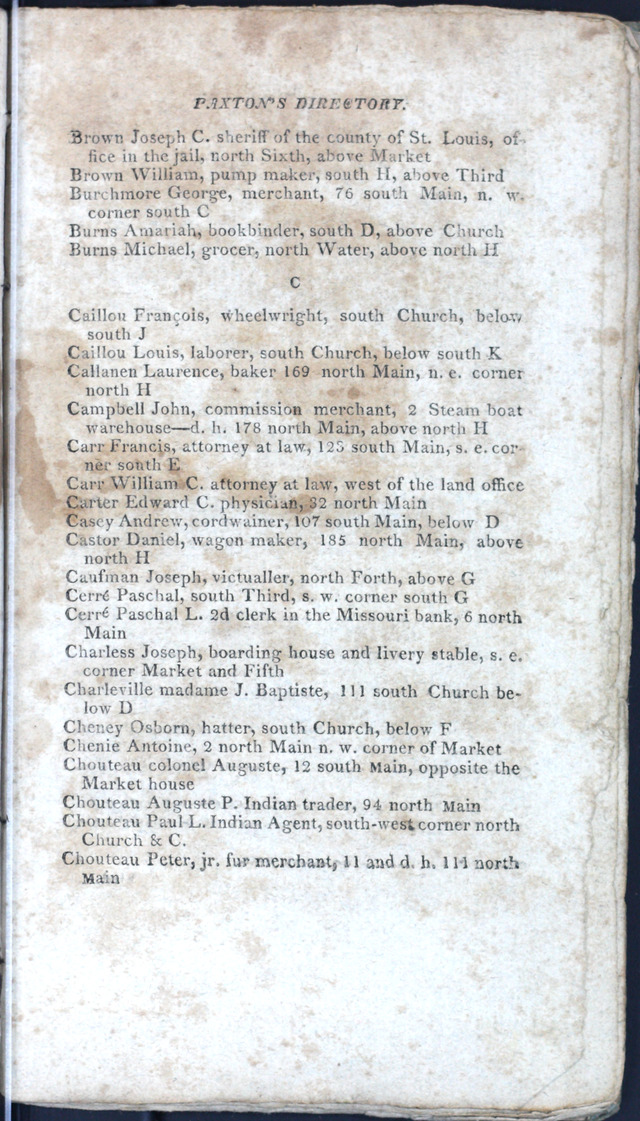 PAXTON'S DIRECTORY.
Brown Joseph C. sheriff of the county of St. Louis, of-
fice in the jail, north Sixth, above Market
Brown William, pump maker, south H, above Third
Burchmore George, merchant, 76 south Main, n. w.
corner south C
Burns Amariah, bookbinder, south D, above Church
Burns Michael, grocer, north Water, above north H
C
Caillou François, wheelwright, south Church, below
south J
Caillou Louis, laborer, south Church, below south K
Callanen Laurence, baker 169 north Main, n. e. corner
north H
Campbell John, commission merchant, 2 Steam boat
warehouse—d. h. 178 north Main, above north H
Carr Francis, attorney at law, 125 south Main, s. e. cor-
ner south E
Carr William C. attorney at law, west of the land office
Carter Edward C. physician, 32 north Main
Casey Andrew, cordwainer, 107 south Main, below D
Castor Daniel, wagon maker, 185 north Main, above
north H
Caufman Joseph, victualler, north Forth, above G
Cerré Paschal, south Third, s. w. corner south G
Cerré Paschal L. 2d clerk in the Missouri bank, 6 north
Main
Charless Joseph, boarding house and livery stable, s. e.
corner Market and Fifth
Charleville madame J. Baptiste, 111 south Church be-
low D
Cheney Osborn, hatter, south Church, below F
Chenie Antoine, 2 north Main n. w. corner of Market
Chouteau colonel Auguste, 12 south Main, opposite the
Market house
Chouteau Auguste P. Indian trader, 94 north Main
Chouteau Paul L. Indian Agent, south-west corner north
Church & C.
Chouteau Peter, jr. fur merchant, 11 and d. h. 111 north
Main